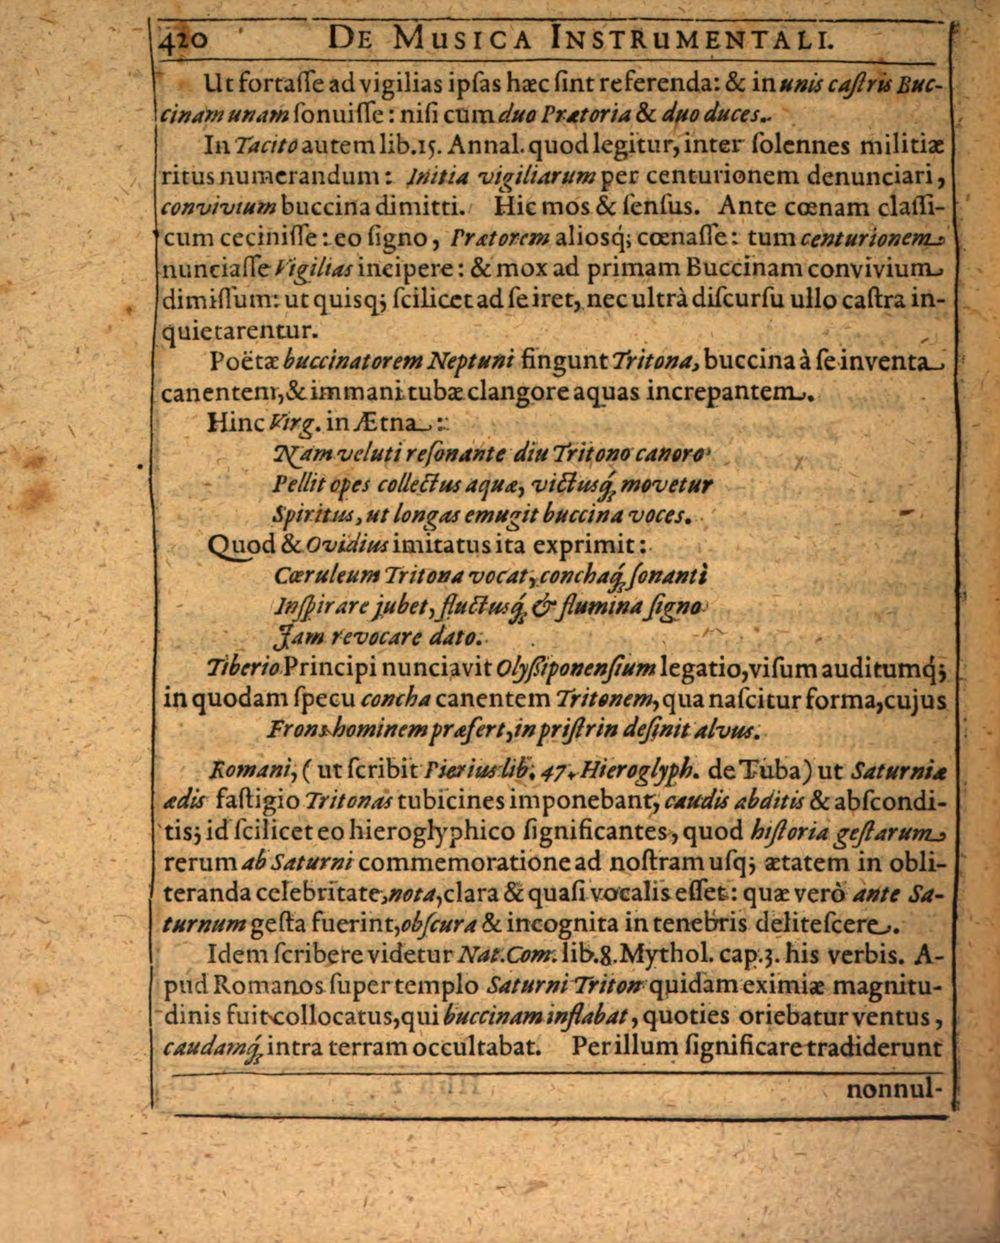 420 DE MUSICA INSTRUMENTALI.
Ut fortaſſe ad vigilias ipſas hæc ſint referenda: & in unis caſtris Buc-
cinam unam ſonuiſſe: niſi cum duo Prætoria & duo duces.
In Tacito autem lib.15. Annal. quod legitur, inter ſolennes militiæ
ritus numerandum: Initia vigiliarum per centurionem denunciari,
convivium buccina dimitti. Hic mos & ſenſus. Ante cœnam claſſi-
cum ceciniſſe: eo ſigno, Prætorem alioſq; cœnaſſe: tum centurionem
nunciaſſe Vigilias incipere: & mox ad primam Buccinam convivium
dimiſſum: ut quisq; ſcilicet ad ſe iret, nec ultrà diſcurſu ullo caſtra in-
quietarentur.
Poëtæ buccinatorem Neptuni fingunt Tritona, buccina à ſe inventa
canentem, & immani tubæ clangore aquas increpantem.
Hinc Virg. in Ætna:
Nam veluti reſonante diu Tritono canoro
Pellit opes collectus aquæ, victusq́; movetur
Spiritus, ut longas emugit buccina voces.
Quod & Ovidius imitatus ita exprimit:
Cæruleum Tritona vocat, conchaq́; ſonanti
Inſpirare jubet, fluctusq́; & flumina ſigno
Jam revocare dato.
Tiberio Principi nunciavit Olyſſiponenſium legatio, viſum auditumq;
in quodam ſpecu concha canentem Tritonem, qua naſcitur forma, cujus
Frons hominem præfert, in priſtrin deſinit alvus.
Romani, (ut ſcribit Pierius lib. 47. Hieroglyph. de Tuba) ut Saturniæ
ædis faſtigio Tritonas tubicines imponebant, caudis abditis & abſcondi-
tis; id ſcilicet eo hieroglyphico ſignificantes, quod hiſtoria geſtarum
rerum ab Saturni commemoratione ad noſtram uſq; ætatem in obli-
teranda celebritate, nota, clara & quaſi vocalis eſſet: quæ verò ante Sa-
turnum geſta fuerint, obſcura & incognita in tenebris deliteſcere.
Idem ſcribere videtur Nat. Com. lib.8. Mythol. cap.3. his verbis. A-
pud Romanos ſuper templo Saturni Triton quidam eximiæ magnitu-
dinis fuit collocatus, qui buccinam inflabat, quoties oriebatur ventus,
caudamq́; intra terram occultabat. Per illum ſignificare tradiderunt
nonnul-